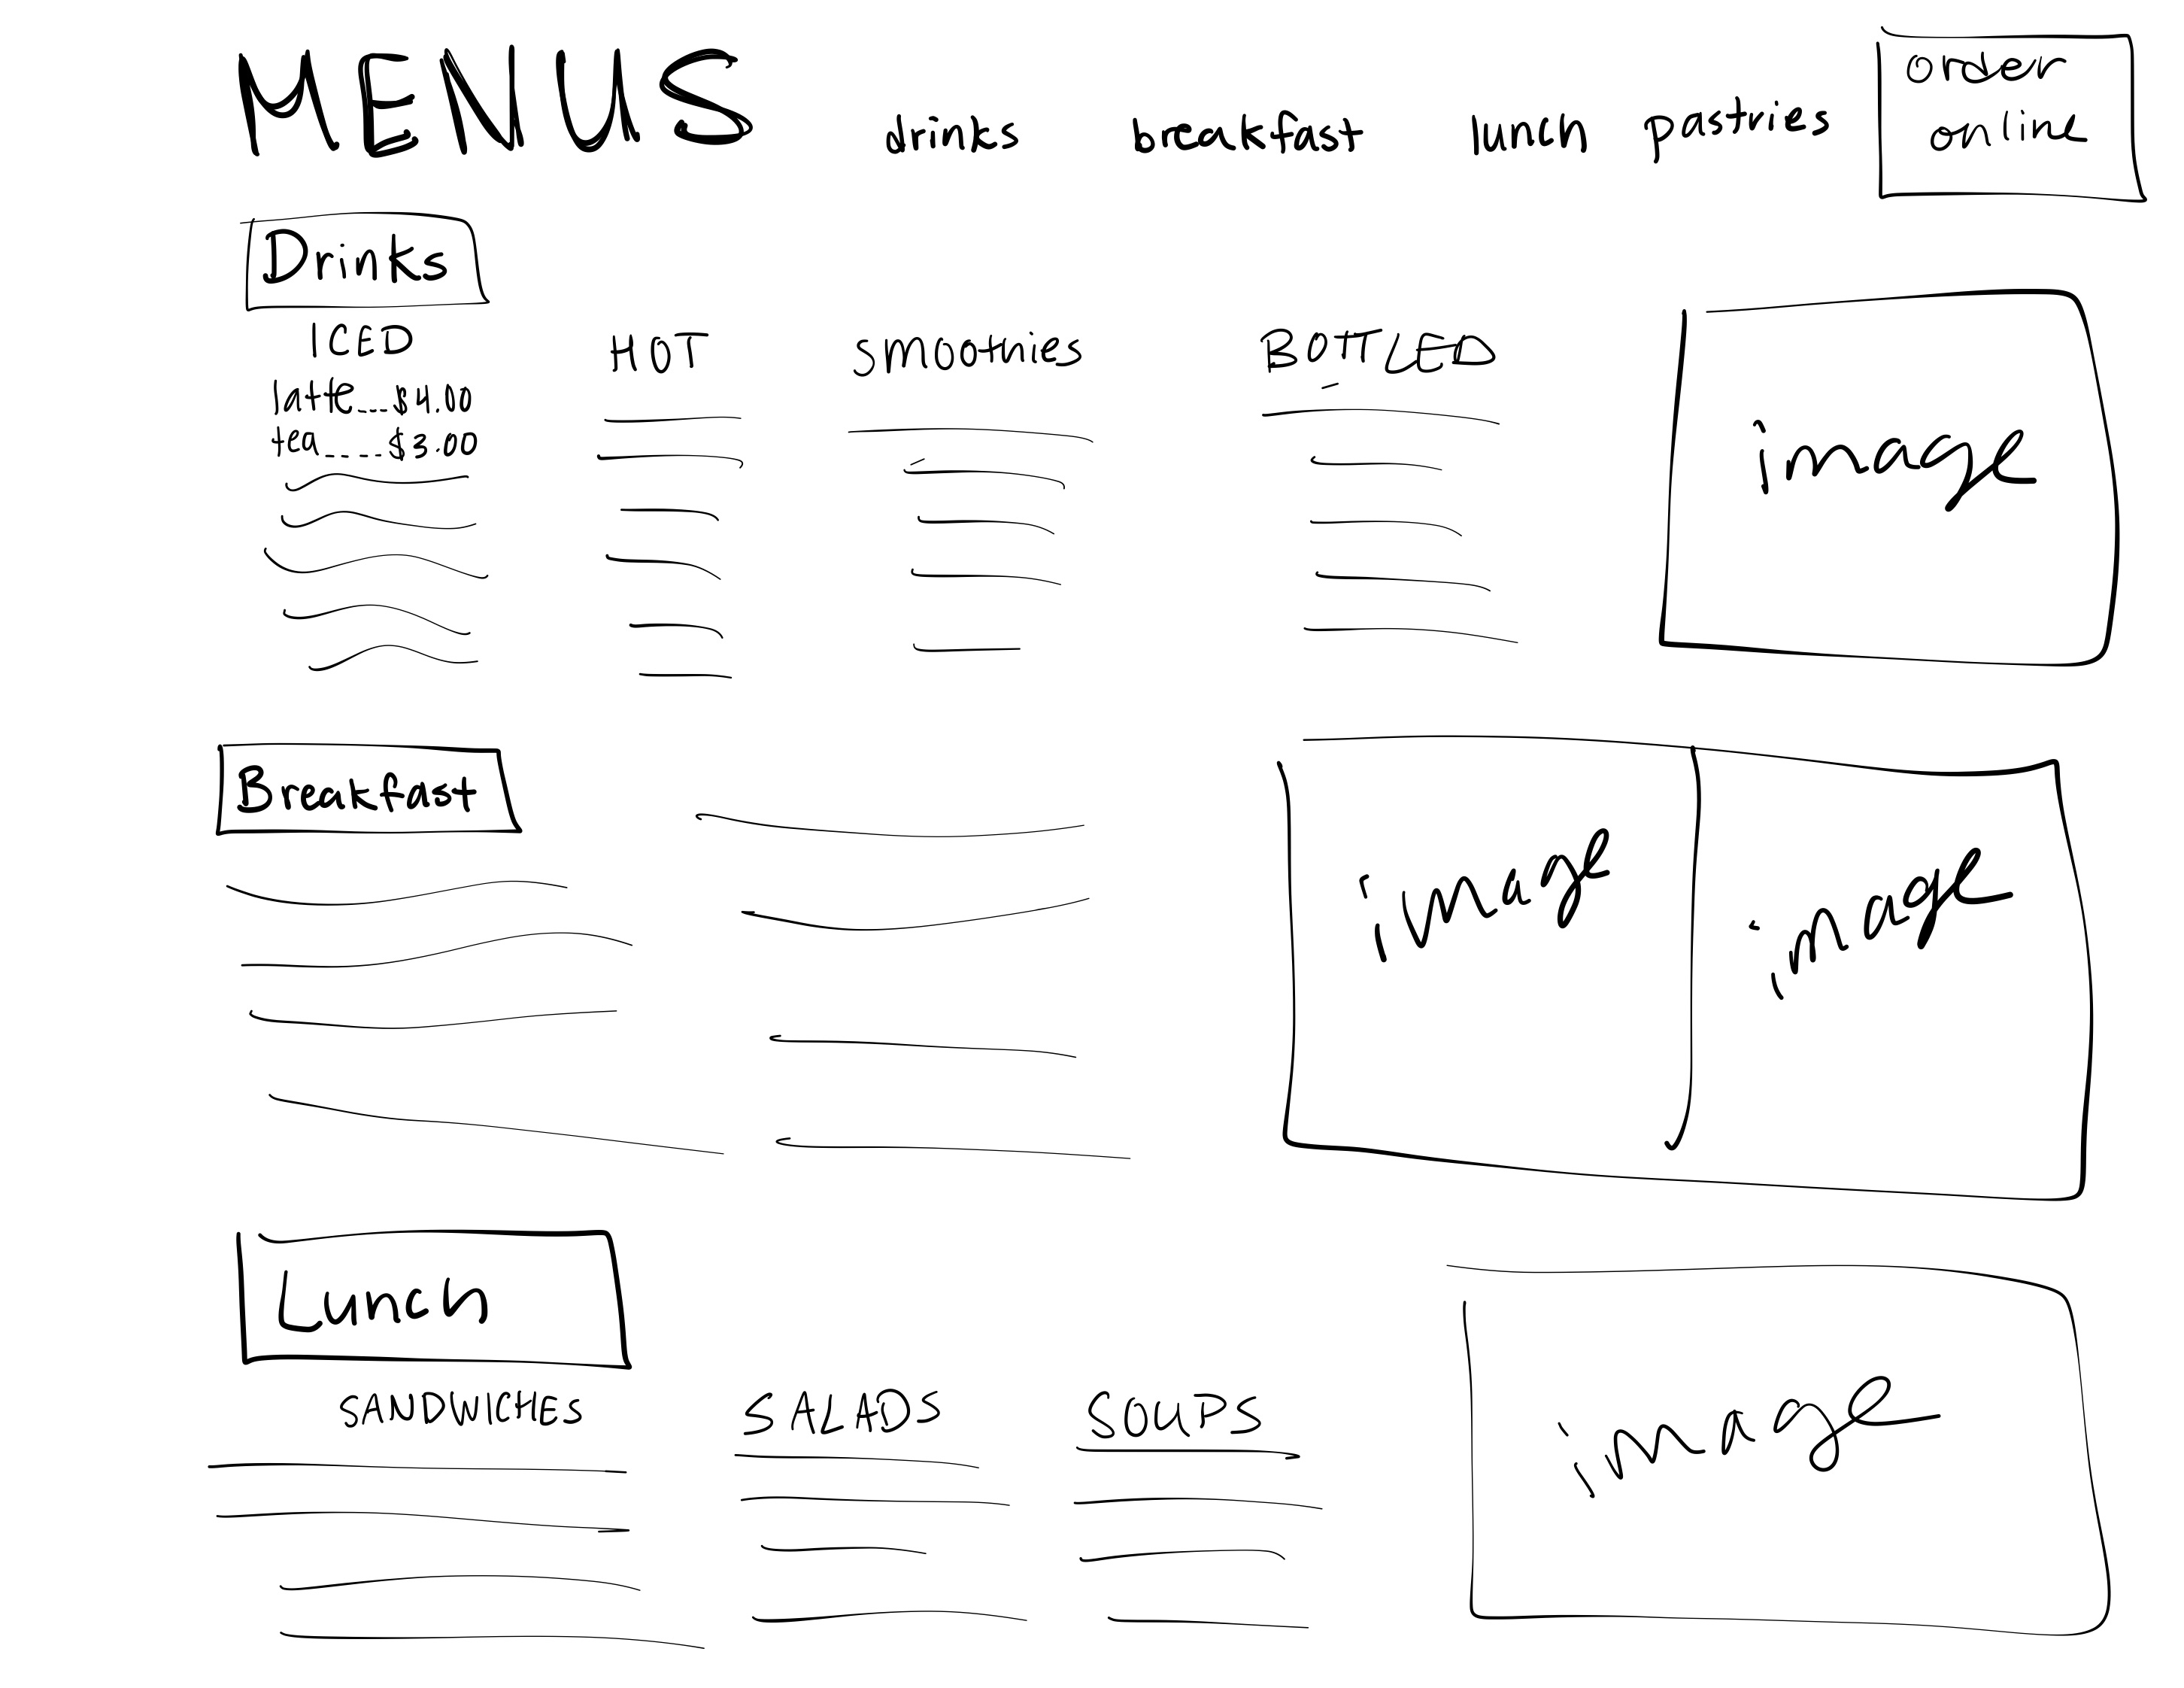 MENUS drinks breakfast lunch pastries order online
Drinks
ICED HOT SMOOthies BOTTLED
latte...$4.00
tea....$3.00
image
Breakfast
image image
Lunch
SANDWICHES SALADS SOUPS
image